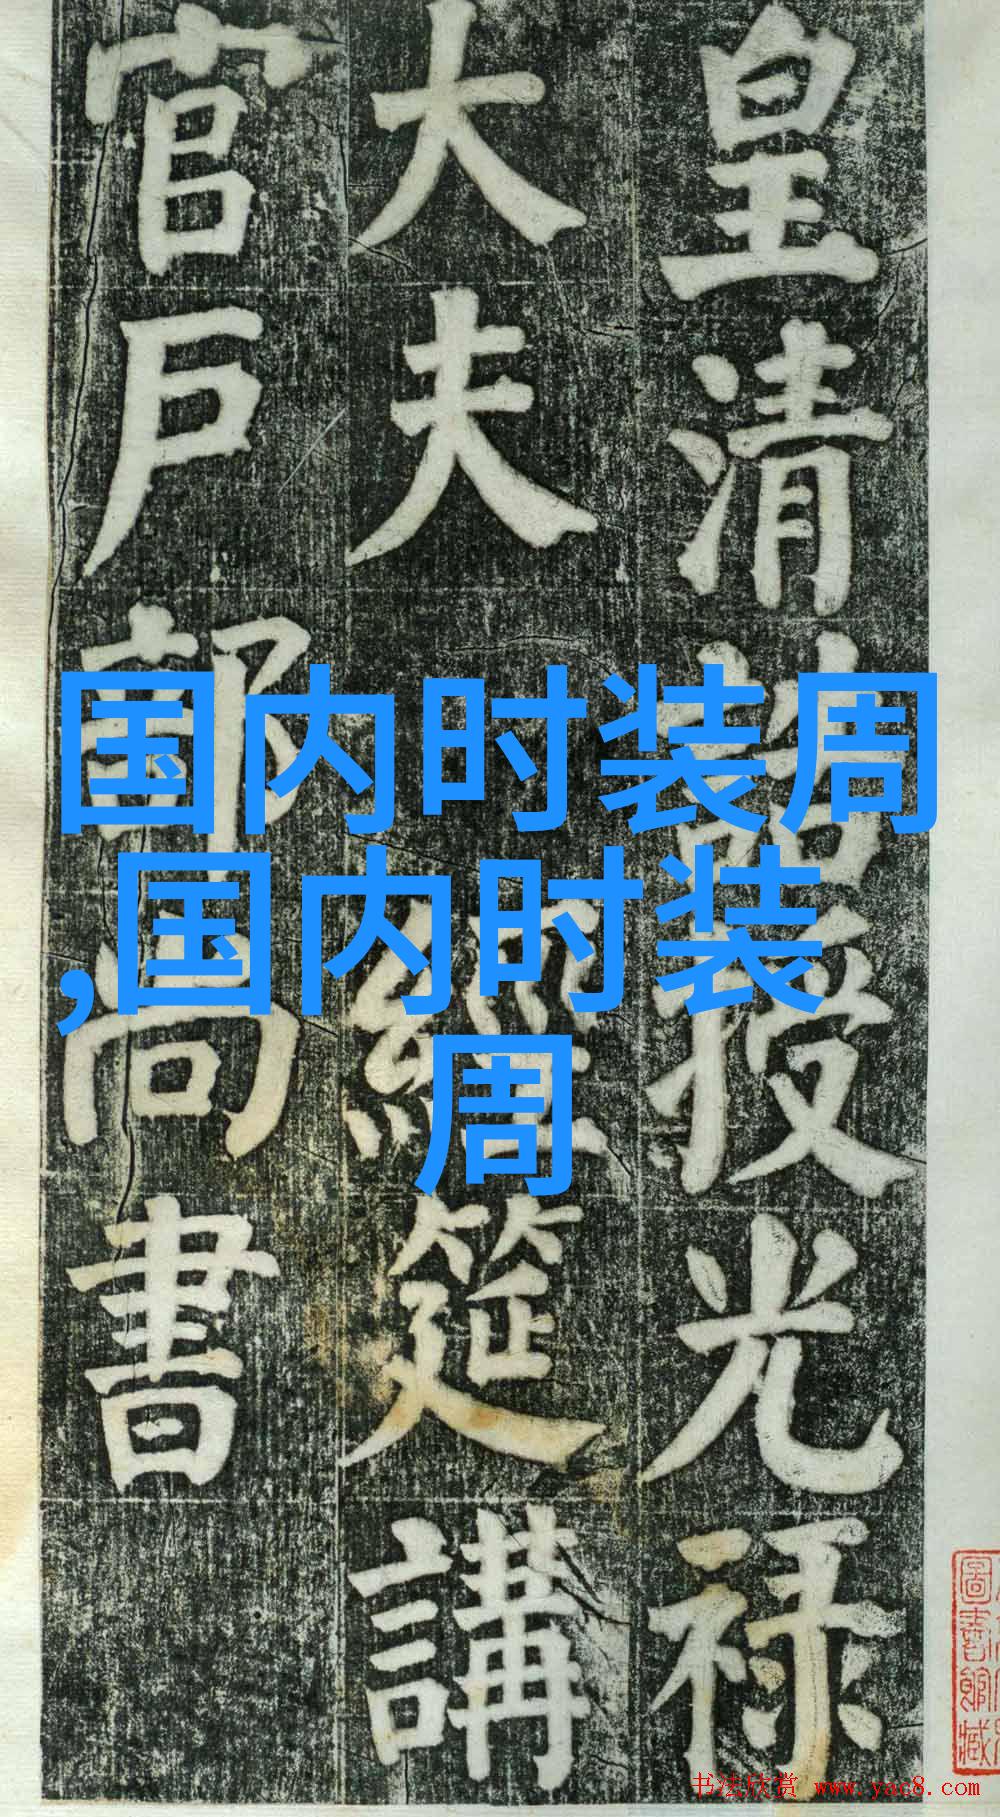 皇清誥授光禄
大夫 經筵講
官户部尚書
国内时装周
,国内时装
周
圖書館藏
书法欣赏 www.yac8.com